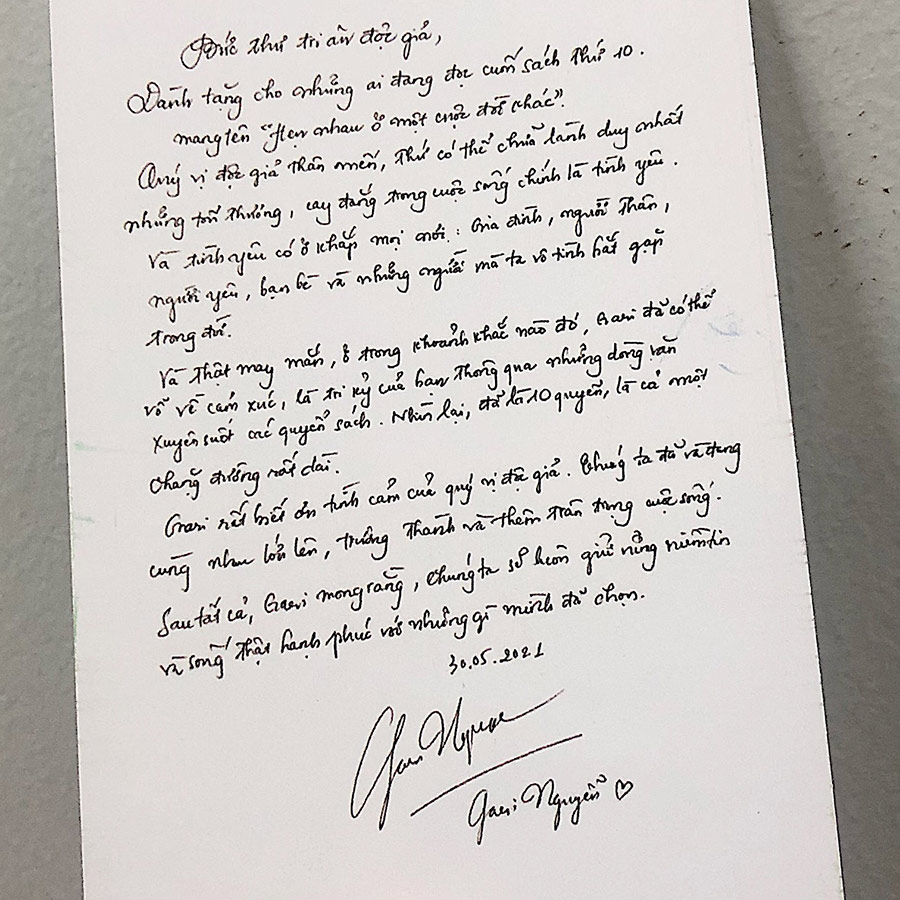 Bức thư tri ân độc giả,
Dành tặng cho những ai đang đọc cuốn sách thứ 10.
mang tên "Hẹn nhau ở một cuộc đời khác".
Quý vị độc giả thân mến, thứ có thể chữa lành duy nhất
những tổn thương, cay đắng trong cuộc sống chính là tình yêu.
Và tình yêu có ở khắp mọi nơi: Gia đình, người thân,
người yêu, bạn bè và những người mà ta vô tình bắt gặp
trong đời.
Và thật may mắn, ở trong khoảnh khắc nào đó, Gari đã có thể
vỗ về cảm xúc, là tri kỷ của bạn thông qua những dòng văn
xuyên suốt các quyển sách. Nhìn lại, đã là 10 quyển, là cả một
chặng đường rất dài.
Gari rất biết ơn tình cảm của quý vị độc giả. Chúng ta đã và đang
cùng nhau lớn lên, trưởng thành và thêm trân trọng cuộc sống.
Sau tất cả, Gari mong rằng, chúng ta sẽ luôn giữ vững niềm tin
và sống thật hạnh phúc với những gì mình đã chọn.
30.05.2021
Gari Nguyễn